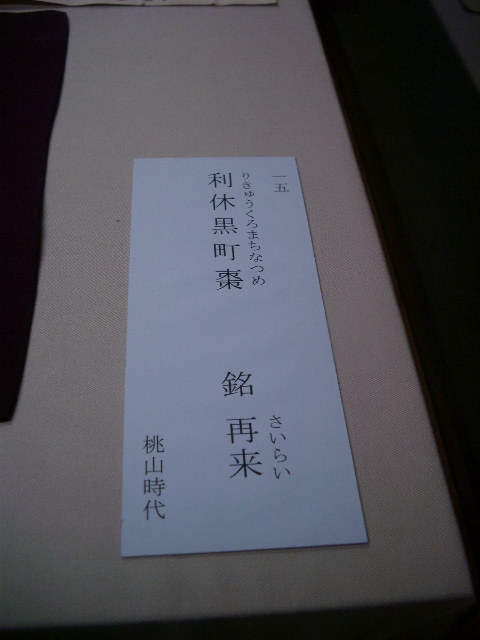 一五
りきゅうくろまちなつめ
利休黒町棗
さいらい
銘 再来
桃山時代